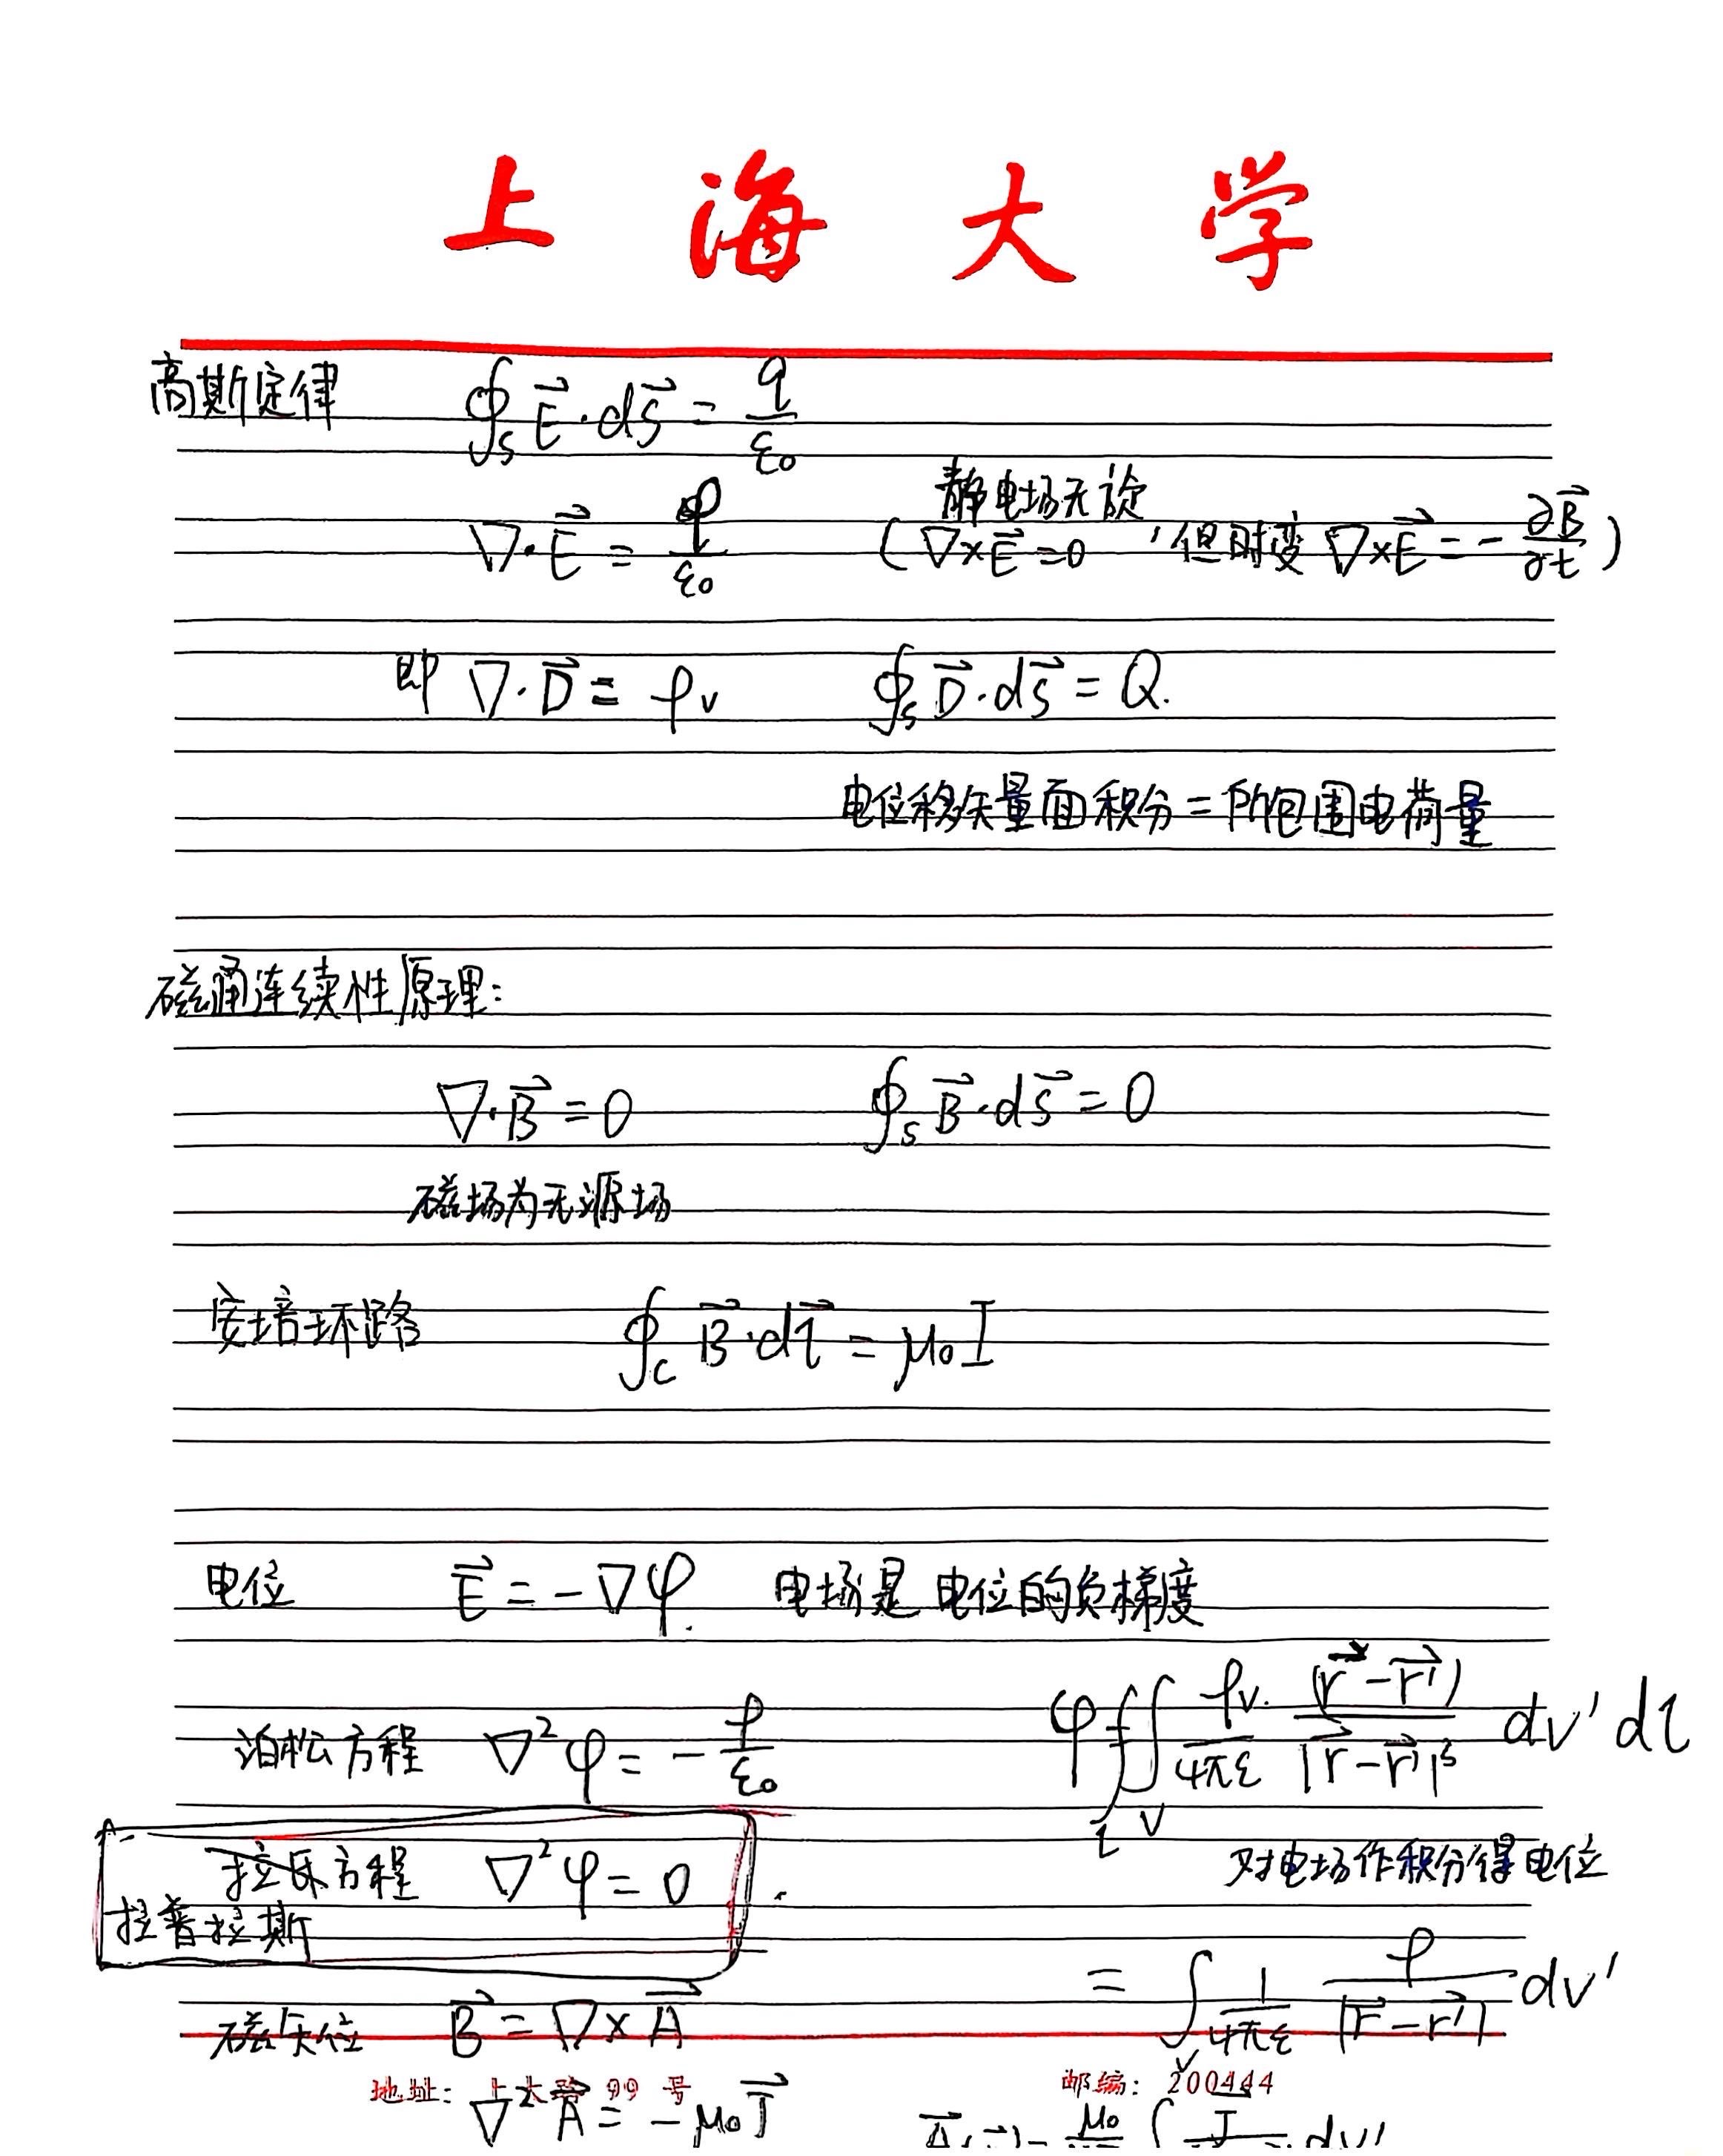 上海大学
高斯定律 ∮_S E⃗·dS⃗ = q/ε₀
静电场无旋
∇·E⃗ = ρ/ε₀ (∇×E⃗=0，但时变 ∇×E⃗=-∂B⃗/∂t)
即 ∇·D⃗ = ρv ∮_S D⃗·dS⃗ = Q.
电位移矢量面积分=所包围电荷量
磁通连续性原理:
∇·B⃗=0 ∮_S B⃗·dS⃗=0
磁场为无源场
安培环路 ∮_C B⃗·dl⃗ = μ₀I
电位 E⃗ = -∇φ. 电场是电位的负梯度
泊松方程 ∇²φ = -ρ/ε₀ φ=∫_l∫_V ρv./4πε (r⃗-r⃗')/|r⃗-r⃗'|³ dv'dl
对电场作积分得电位
拉氏方程 ∇²φ=0
拉普拉斯
= ∫_V 1/4πε ρ/|r⃗-r⃗'| dv'
磁矢位 B⃗ = ∇×A⃗
地址: 上大路 99 号 邮编: 200444
∇²A⃗ = -μ₀J⃗